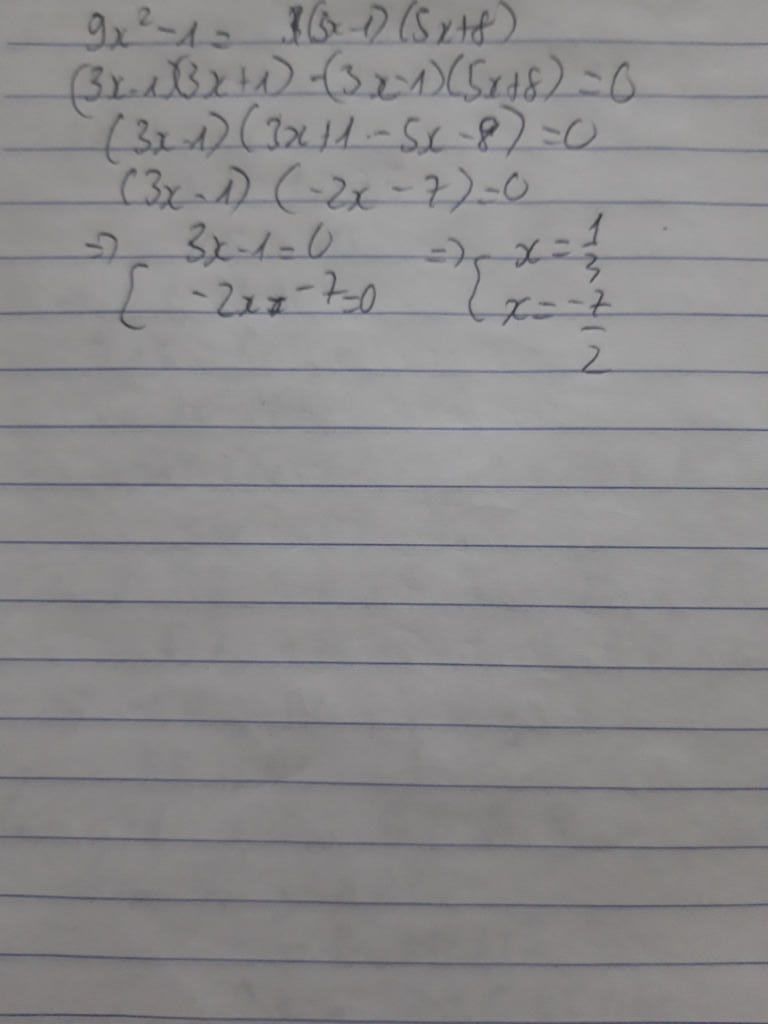 9x² - 1 = (3x-1)(5x+8)
(3x-1)(3x+1) - (3x-1)(5x+8) = 0
(3x-1)(3x+1-5x-8) = 0
(3x-1)(-2x-7) = 0
=> [ 3x-1=0 => [ x = 1/3
-2x-7=0 x = -7/2